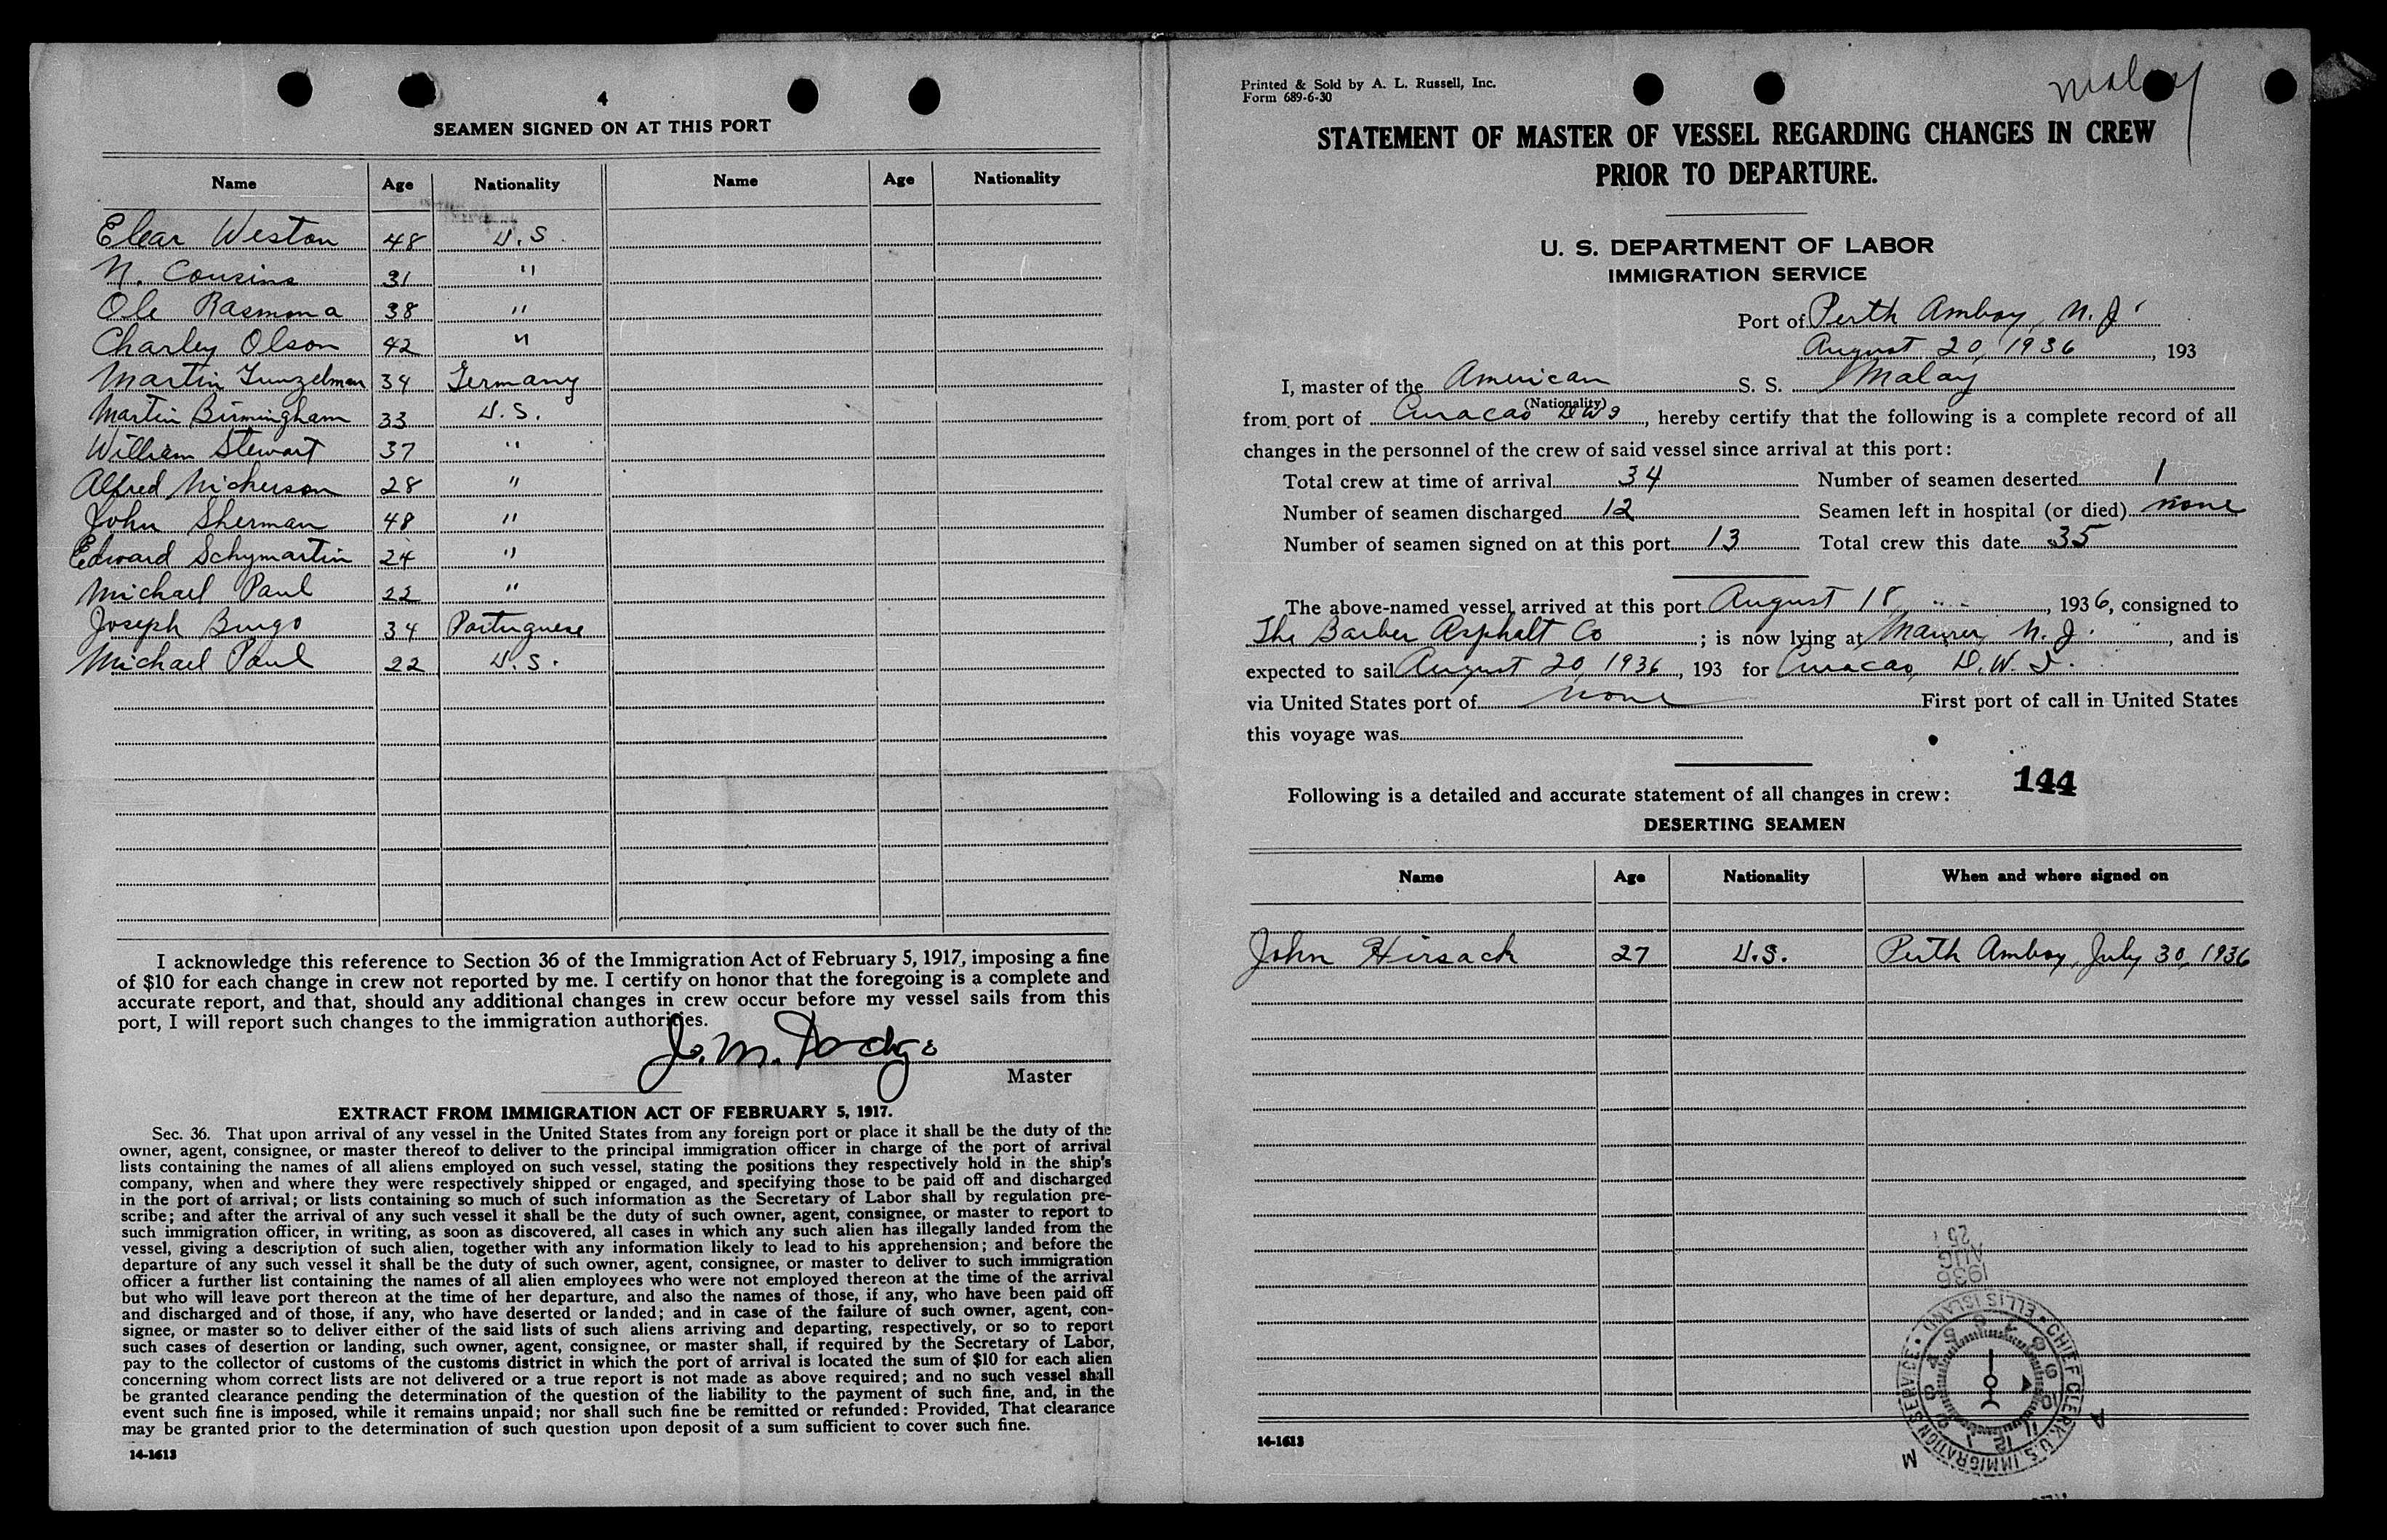 4
SEAMEN SIGNED ON AT THIS PORT
Name Age Nationality Name Age Nationality
Elear Weston 48 U.S.
N. Cousins 31 "
Ole Rasmona 38 "
Charley Olson 42 "
Martin 34 Germany
Martin Birmingham 33 U.S.
William Stewart 37 "
Alfred Nickerson 28 "
John Sherman 48 "
Edward Schymartin 24 "
Michael Paul 22 "
Joseph Burgo 34 Portuguese
Michael Paul 22 U.S.
I acknowledge this reference to Section 36 of the Immigration Act of February 5, 1917, imposing a fine
of $10 for each change in crew not reported by me. I certify on honor that the foregoing is a complete and
accurate report, and that, should any additional changes in crew occur before my vessel sails from this
port, I will report such changes to the immigration authorities.
J. M. Dodge
Master
EXTRACT FROM IMMIGRATION ACT OF FEBRUARY 5, 1917.
Sec. 36. That upon arrival of any vessel in the United States from any foreign port or place it shall be the duty of the
owner, agent, consignee, or master thereof to deliver to the principal immigration officer in charge of the port of arrival
lists containing the names of all aliens employed on such vessel, stating the positions they respectively hold in the ship's
company, when and where they were respectively shipped or engaged, and specifying those to be paid off and discharged
in the port of arrival; or lists containing so much of such information as the Secretary of Labor shall by regulation pre-
scribe; and after the arrival of any such vessel it shall be the duty of such owner, agent, consignee, or master to report to
such immigration officer, in writing, as soon as discovered, all cases in which any such alien has illegally landed from the
vessel, giving a description of such alien, together with any information likely to lead to his apprehension; and before the
departure of any such vessel it shall be the duty of such owner, agent, consignee, or master to deliver to such immigration
officer a further list containing the names of all alien employees who were not employed thereon at the time of the arrival
but who will leave port thereon at the time of her departure, and also the names of those, if any, who have been paid off
and discharged and of those, if any, who have deserted or landed; and in case of the failure of such owner, agent, con-
signee, or master so to deliver either of the said lists of such aliens arriving and departing, respectively, or so to report
such cases of desertion or landing, such owner, agent, consignee, or master shall, if required by the Secretary of Labor,
pay to the collector of customs of the customs district in which the port of arrival is located the sum of $10 for each alien
concerning whom correct lists are not delivered or a true report is not made as above required; and no such vessel shall
be granted clearance pending the determination of the question of the liability to the payment of such fine, and, in the
event such fine is imposed, while it remains unpaid; nor shall such fine be remitted or refunded: Provided, That clearance
may be granted prior to the determination of such question upon deposit of a sum sufficient to cover such fine.
14-1613
Printed & Sold by A. L. Russell, Inc.
Form 689-6-30
Malay
STATEMENT OF MASTER OF VESSEL REGARDING CHANGES IN CREW
PRIOR TO DEPARTURE.
U. S. DEPARTMENT OF LABOR
IMMIGRATION SERVICE
Port of Perth Amboy, N. J.
August 20, 1936, 193
I, master of the American S. S. Malay
(Nationality)
from port of Curacao DWI, hereby certify that the following is a complete record of all
changes in the personnel of the crew of said vessel since arrival at this port:
Total crew at time of arrival 34 Number of seamen deserted 1
Number of seamen discharged 12 Seamen left in hospital (or died) none
Number of seamen signed on at this port 13 Total crew this date 35
The above-named vessel arrived at this port August 18, 1936, consigned to
The Barber Asphalt Co; is now lying at Maurer, N. J., and is
expected to sail August 20, 1936, 193 for Curacao, D.W.I.
via United States port of none First port of call in United States
this voyage was
144
Following is a detailed and accurate statement of all changes in crew:
DESERTING SEAMEN
Name Age Nationality When and where signed on
John Hirsack 27 U.S. Perth Amboy, July 30, 1936
1936
AUG
25
CHIEF CLERK U.S. IMMIGRATION SERVICE • ELLIS ISLAND
A M
14-1613